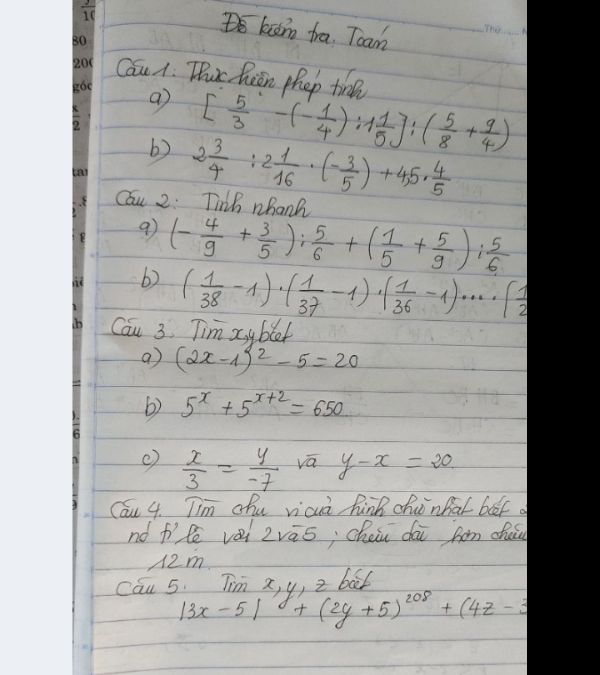 Đề kiểm tra Toán
Câu 1: Thực hiện phép tính
a) [ 5/3 - (- 1/4) : 1 1/5 ] : ( 5/8 + 9/4 )
b) 2 3/4 : 2 1/16 . (- 3/5) + 4,5 . 4/5
Câu 2: Tính nhanh
a) (- 4/9 + 3/5) : 5/6 + ( 1/5 + 5/9 ) : 5/6
b) ( 1/38 - 1) . ( 1/37 - 1) . ( 1/36 - 1) .... ( 1/2
Câu 3. Tìm x,y biết
a) (2x - 1)² - 5 = 20
b) 5^x + 5^(x+2) = 650
c) x/3 = y/-7 và y - x = 20.
Câu 4. Tìm chu vi của hình chữ nhật biết
nó tỉ lệ với 2 và 5 ; chiều dài hơn chiều
12 m.
Câu 5. Tìm x, y, z biết
|3x - 5| + (2y + 5)^208 + (4z - 3